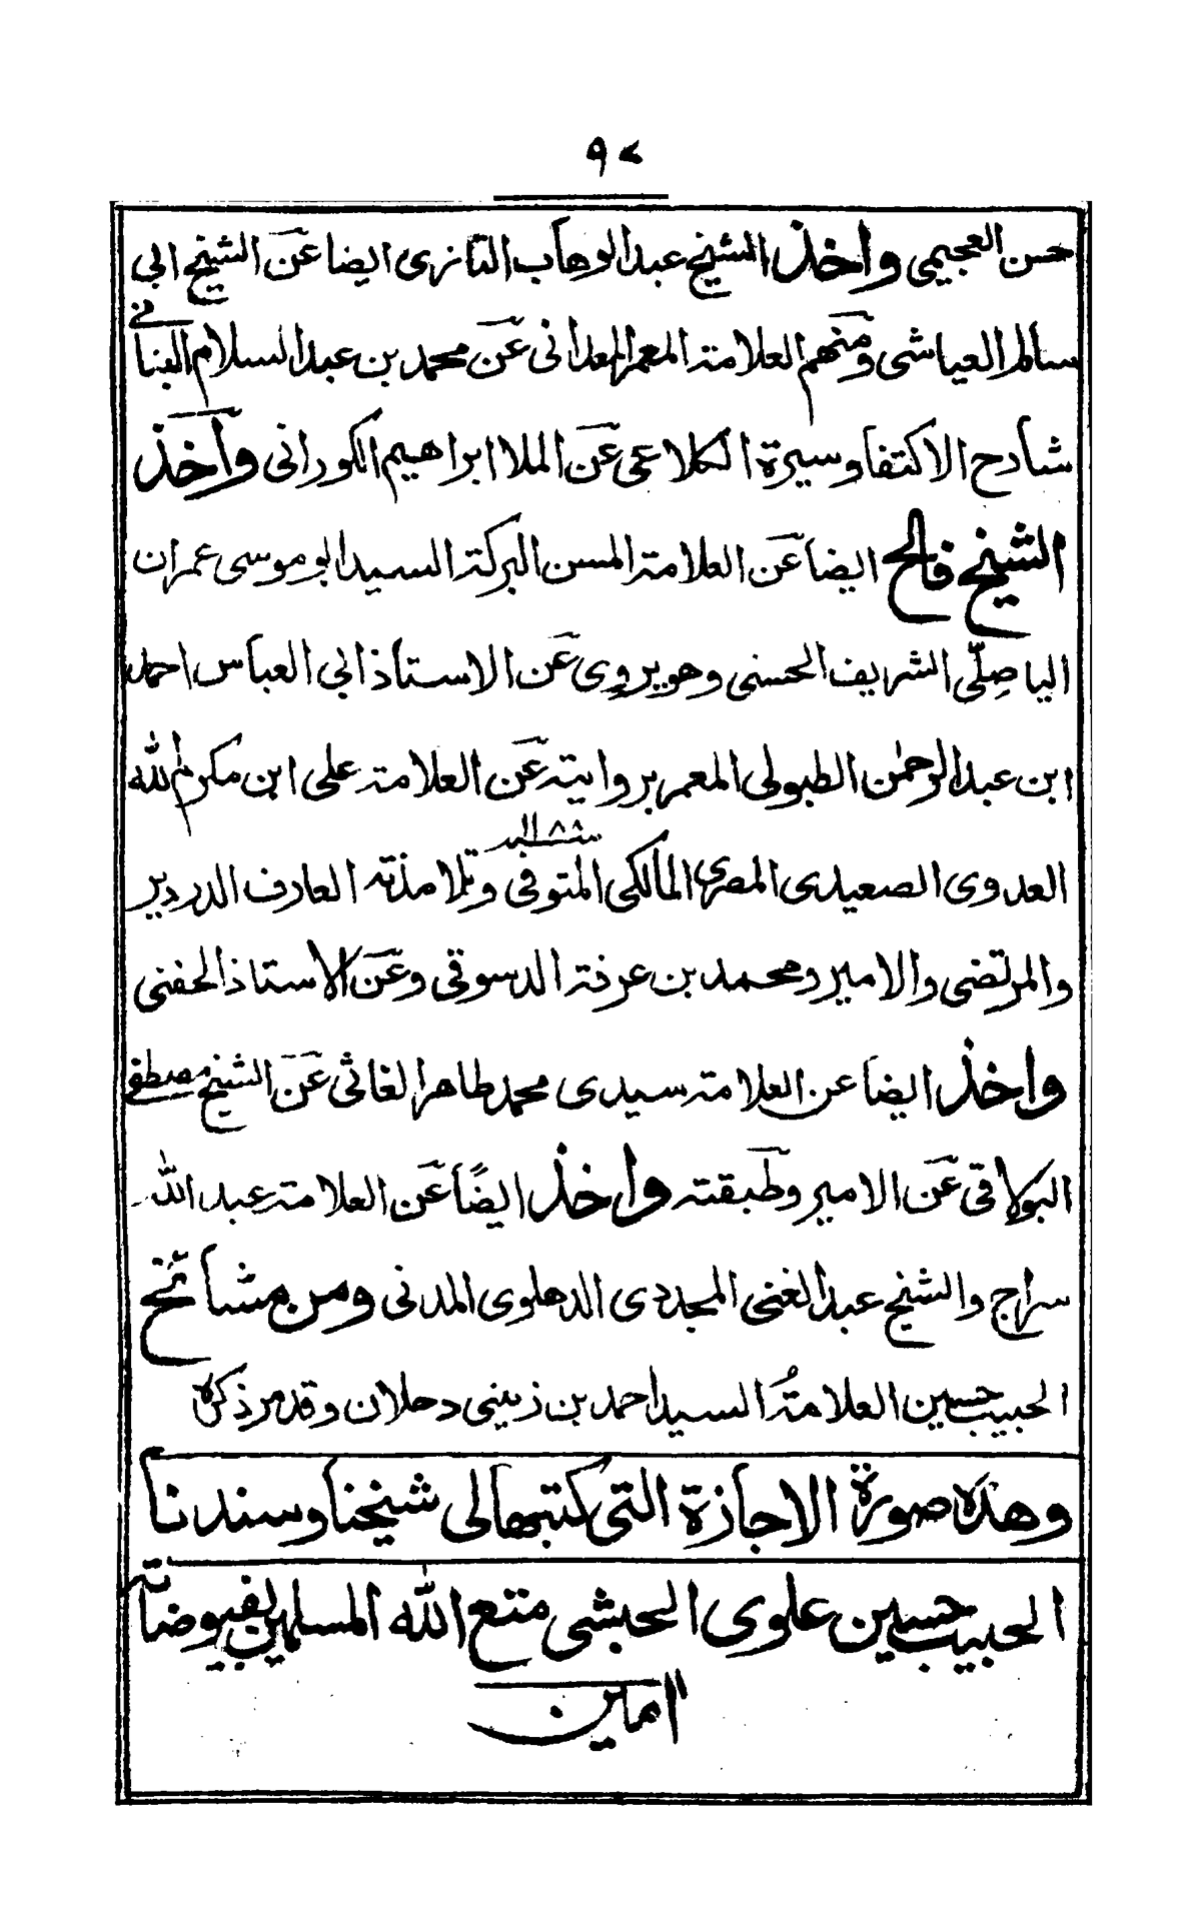 ٩٧
حسن العجيمي واخذ الشيخ عبد الوهاب التازى ايضا عن الشيخ ابي
سالم العياشى ومنهم العلامة المعمر المعدانى عن محمد بن عبد السلام البنانى
شارح الاكتفا وسيرة الكلاعى عن الملا ابراهيم الكورانى وأخذ
الشيخ فالح ايضا عن العلامة المسن البركة السيد ابو موسى عمران
الياصِلّى الشريف الحسنى وهو يروى عن الاستاذ ابي العباس احمد
ابن عبد الرحمن الطبولى المعمر بروايته عن العلامة على ابن مكرم الله
العدوى الصعيدى المصرى المالكى المتوفى وتلامذته العارف الدردير
والمرتضى والامير ومحمد بن عرفة الدسوقى وعن الاستاذ الحفنى
واخذ ايضا عن العلامة سيدى محمد طاهر الغاتى عن الشيخ مصطفى
البولاقى عن الامير وطبقته واخذ ايضًا عن العلامة عبد الله
سراج والشيخ عبد الغنى المجددى الدهلوى المدنى ومن مشائخ
الحبيب حسين العلامةُ السيد احمد بن زينى دحلان وقد مر ذكره
وهذه صورة الاجازة التى كتبها لى شيخنا وسندنا
الحبيب حسين علوى الحبشى متع الله المسلمين بفيوضاته
امين